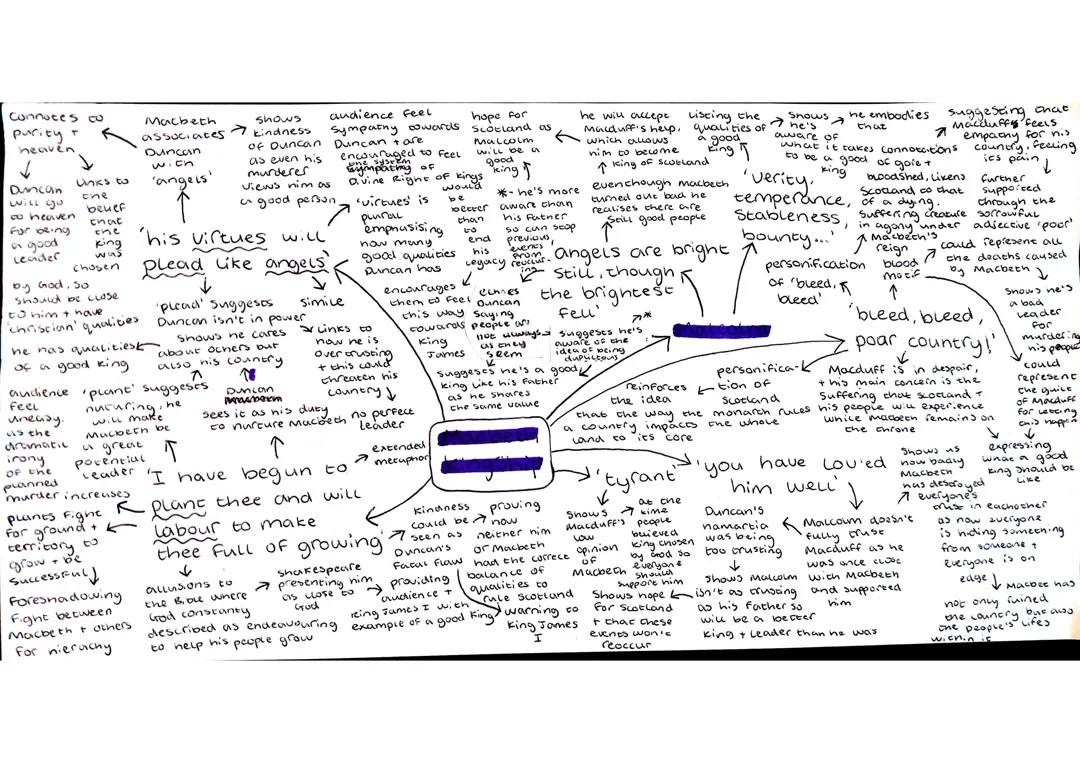 connotes to
purity +
heaven
Duncan
will go
to heaven
for being
a good
leader
links to
the
belief
that
the
king
was
chosen
by God, so
should be close
to him + have
'christian' qualities
Macbeth
associates
Duncan
with
'angels'
shows
kindness
of Duncan
as even his
murderer
views him as
a good person
audience feel
sympathy towards
Duncan + are
encouraged to feel
sympathy of
Divine Right of Kings
'virtues' is
plural
emphasising
how many
good qualities
Duncan has
would
be
better
than
to
end
legacy
hope for
Scotland as
Malcolm
will be a
good
king
*- he's more
aware than
his father
so can stop
previous
events
from
reoccur-
ing
he will accept
Macduff's help,
which allows
him to become
king of Scotland
eventhough macbeth
turned out bad he
realises there are
still good people
Listing the
qualities of
a good
king
shows
he's
aware of
what it takes
to be a good
king
he embodies
that
connotations
of gore +
bloodshed, likens
Scotland to that
of a dying,
suffering creature
in agony under
Macbeth's
reign
suggesting that
Macduff feels
empathy for his
country, feeling
its pain
further
supported
through the
sorrowful
adjective 'poor'
could represent all
the deaths caused
by Macbeth
blood
motif
shows he's
a bad
leader
for
murdering
his people
could
represent
the guilt
of Macduff
for letting
this happen
'his virtues will
plead like angels'
'plead' suggests
Duncan isn't in power
shows he cares
about others but
also his country
he has qualities
of a good king
simile
Links to
how he is
over trusting
+ this could
threaten his
country
no perfect
leader
encourages
them to feel
this way
towards
King
James
echoes
Duncan
saying
people are
not always
as they
seem
'angels are bright
still, though
the brightest
fell'
suggests he's
aware of the
idea of being
duplicitous
suggests he's a good
king like his father
as he shares
the same value
'verity,
temperance,
stableness,
bounty...'
personification
of 'bleed,
bleed'
'bleed, bleed,
poor country!'
personifica-
tion of
Scotland
reinforces
the idea
that the way the monarch rules
a country impacts the whole
land to its core
Macduff is in despair,
+ his main concern is the
suffering that scotland +
his people will experience
while Macbeth remains on
the throne
expressing
what a good
king should be
like
audience
feel
uneasy,
as the
dramatic
irony
of the
planned
murder increases
'plant' suggests
nuturing, he
will make
Macbeth be
a great
potential
leader
Duncan
sees it as his duty
to nurture Macbeth
'I have begun to
plant thee and will
labour to make
thee full of growing'
extended
metaphor
plants fight
for ground +
territory to
grow + be
successful
Foreshadowing
fight between
Macbeth + others
for hierachy
allusions to
the Bible where
God constanty
described as endeavouring
to help his people grow
shakespeare
presenting him
as close to
God
kindness
could be
seen as
Duncan's
fatal flaw
proving
how
neither him
or Macbeth
had the correct
balance of
qualities to
rule Scotland
providing
audience +
King James I with
example of a good king
warning to
King James
I
'tyrant'
shows
Macduff's
low
opinion
of
Macbeth
at the
time
people
believed
king chosen
by God so
everyone
should
support him
Shows hope
for Scotland
+ that these
events won't
reoccur
'you have lov'ed
him well'
Duncan's
hamartia
was being
too trusting
shows Malcolm
isn't as trusting
as his father so
will be a better
king + leader than he was
Malcolm doesn't
fully trust
Macduff as he
was once close
with Macbeth
and supported
him
Shows us
how badly
Macbeth
has destroyed
everyone's
trust in eachother
as now everyone
is hiding something
from someone +
everyone is on
edge
Macbet has
not only ruined
the country but also
the people's lifes
within it